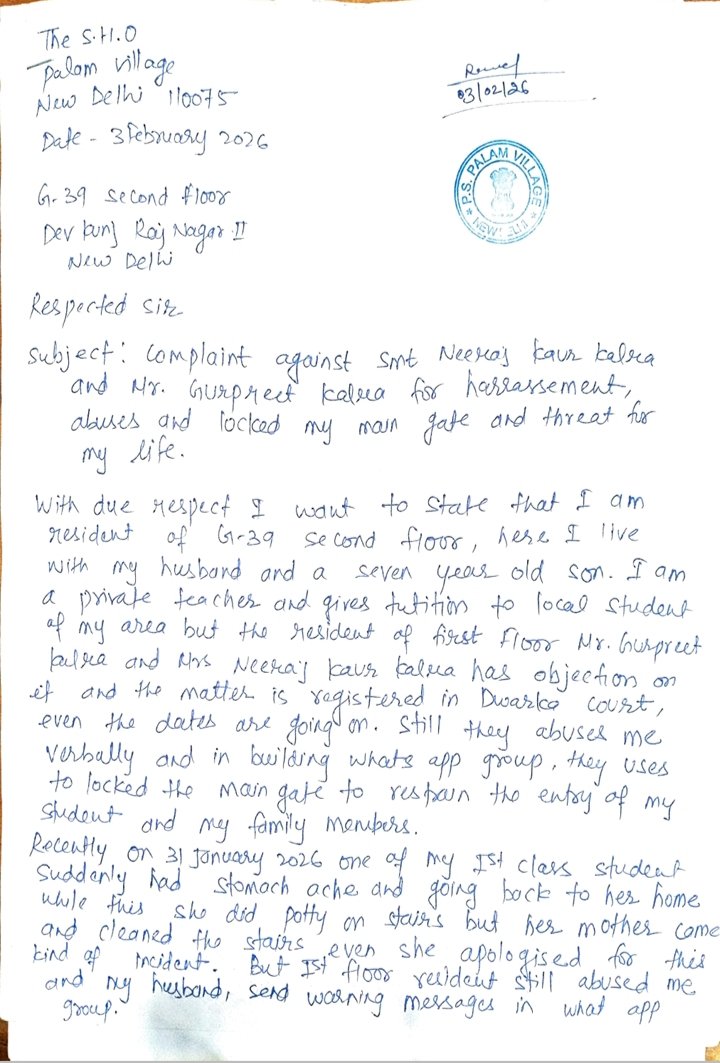 The S.H.O
Palam village
New Delhi 110075
Date - 3 February 2026
03/02/26
P.S. PALAM VILLAGE
NEW DELHI
G-39 second floor
Dev kunj Raj Nagar II
New Delhi
Respected sir
Subject: Complaint against smt Neeraj kaur kalra
and Mr. Gurpreet kalra for harrassement,
abuses and locked my main gate and threat for
my life.
With due respect I want to state that I am
resident of G-39 second floor, here I live
with my husband and a seven year old son. I am
a private teacher and gives tutition to local student
of my area but the resident of first floor Mr. Gurpreet
kalra and Mrs Neeraj kaur kalra has objection on
it and the matter is registered in Dwarka court,
even the dates are going on. Still they abuses me
verbally and in building whats app group, they uses
to locked the main gate to restrain the entry of my
student and my family members.
Recently on 31 January 2026 one of my Ist class student
suddenly had stomach ache and going back to her home
while this she did potty on stairs but her mother came
and cleaned the stairs even she apologised for this
kind of incident. But Ist floor resident still abused me
and my husband, send warning messages in what app
group.